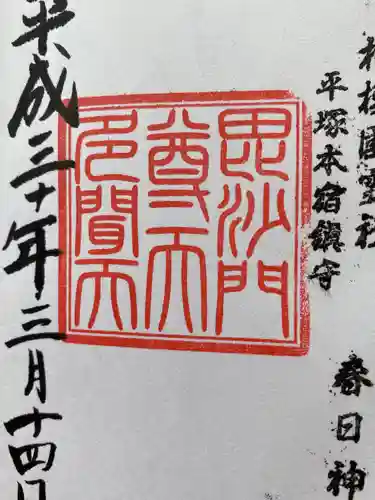 平塚本宿鎮守
春日神
毘沙門
尊天
多聞天
平成三十年三月十四日